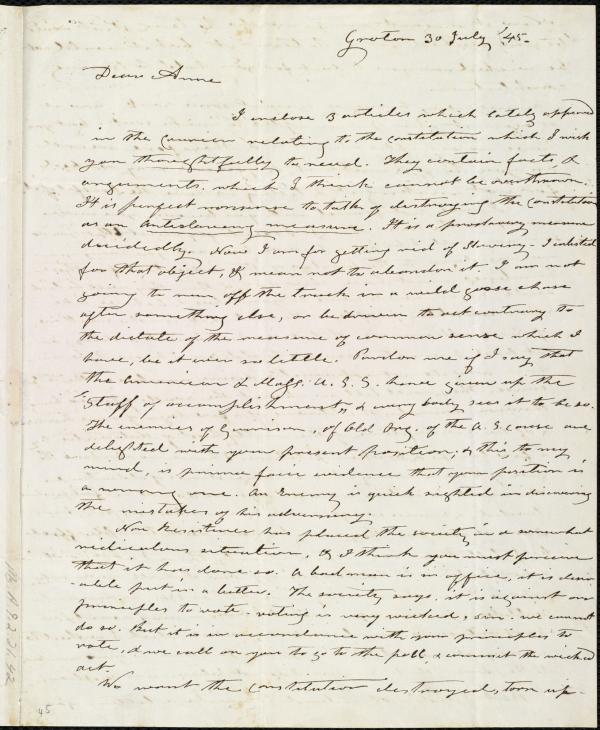 Groton 30 July '45.
Dear Anne
I enclose 3 articles which lately appeared
in the Courier relating to the constitution which I wish
you thoughtfully to read. They contain facts, &
arguments, which I think cannot be overthrown.
It is perfect nonsense to talk of destroying the Constitution
as an Antislavery measure. It is a proslavery measure
decidedly. Now I am for getting rid of Slavery - I enlisted
for that object, & mean not to abandon it. I am not
going to run off the track in a wild goose chase
after something else, or be driven to act contrary to
the dictate of the measure of common sense which I
have, be it ever so little. Pardon me if I say that
the American & Mass. A. S. S. have given up the
"Stuff of accomplishment", & every body sees it to be so.
The enemies of Garrison, of Old Org. of the A. S. cause are
delighted with your present position; & this, to my
mind, is prima facie evidence that your position is
a wrong one. An Enemy is quick sighted in discovering
the mistakes of his adversary.
Non Resistance has placed the society in a somewhat
ridiculous situation, & I think you must perceive
that it has done so. A bad man is in office, it is desir-
able put in a better. The society says, it is against our
principles to vote. voting is very wicked, sin. we cannot
do so. But it is in accordance with your principles to
vote, & we call on you to go to the poll, & commit the wicked
act.
We want the Constitution destroyed, torn up-
45